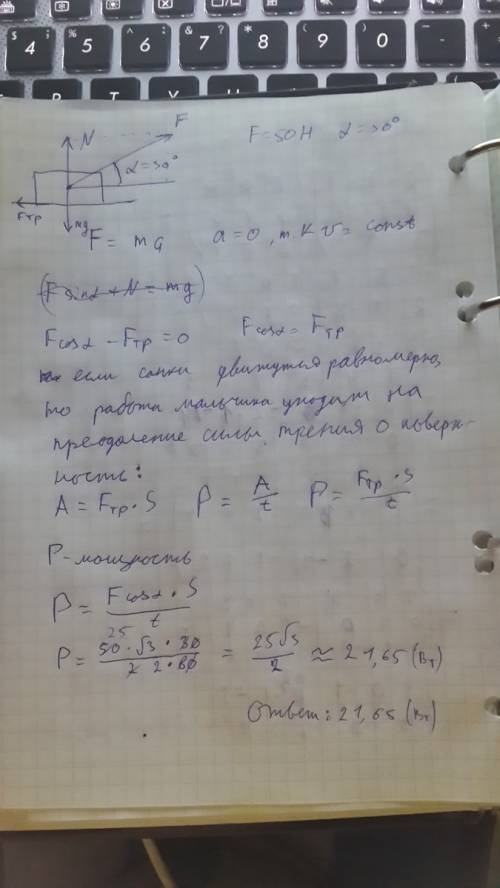 $ 4 ;
% 5 :
^ 6 ,
& 7 ?
* 8
( 9
) 0
-
+ =
N F
α=30°
Fтр
mg
F=50H α=30°
F = ma a=0, т.к v= const
(F sinα + N = mg)
Fcosα - Fтр = 0 Fcosα = Fтр
если санки движутся равномерно,
то работа мальчика уходит на
преодоление силы трения о поверх-
ность:
A = Fтр · S P = A/t P = Fтр · S / t
P-мощность
P = Fcosα · S / t
P = 50 · √3 · 30 / 2 · 60 = 25√3 / 2 ≈ 21,65 (Вт)
25
2
Ответ: 21,65 (Вт)